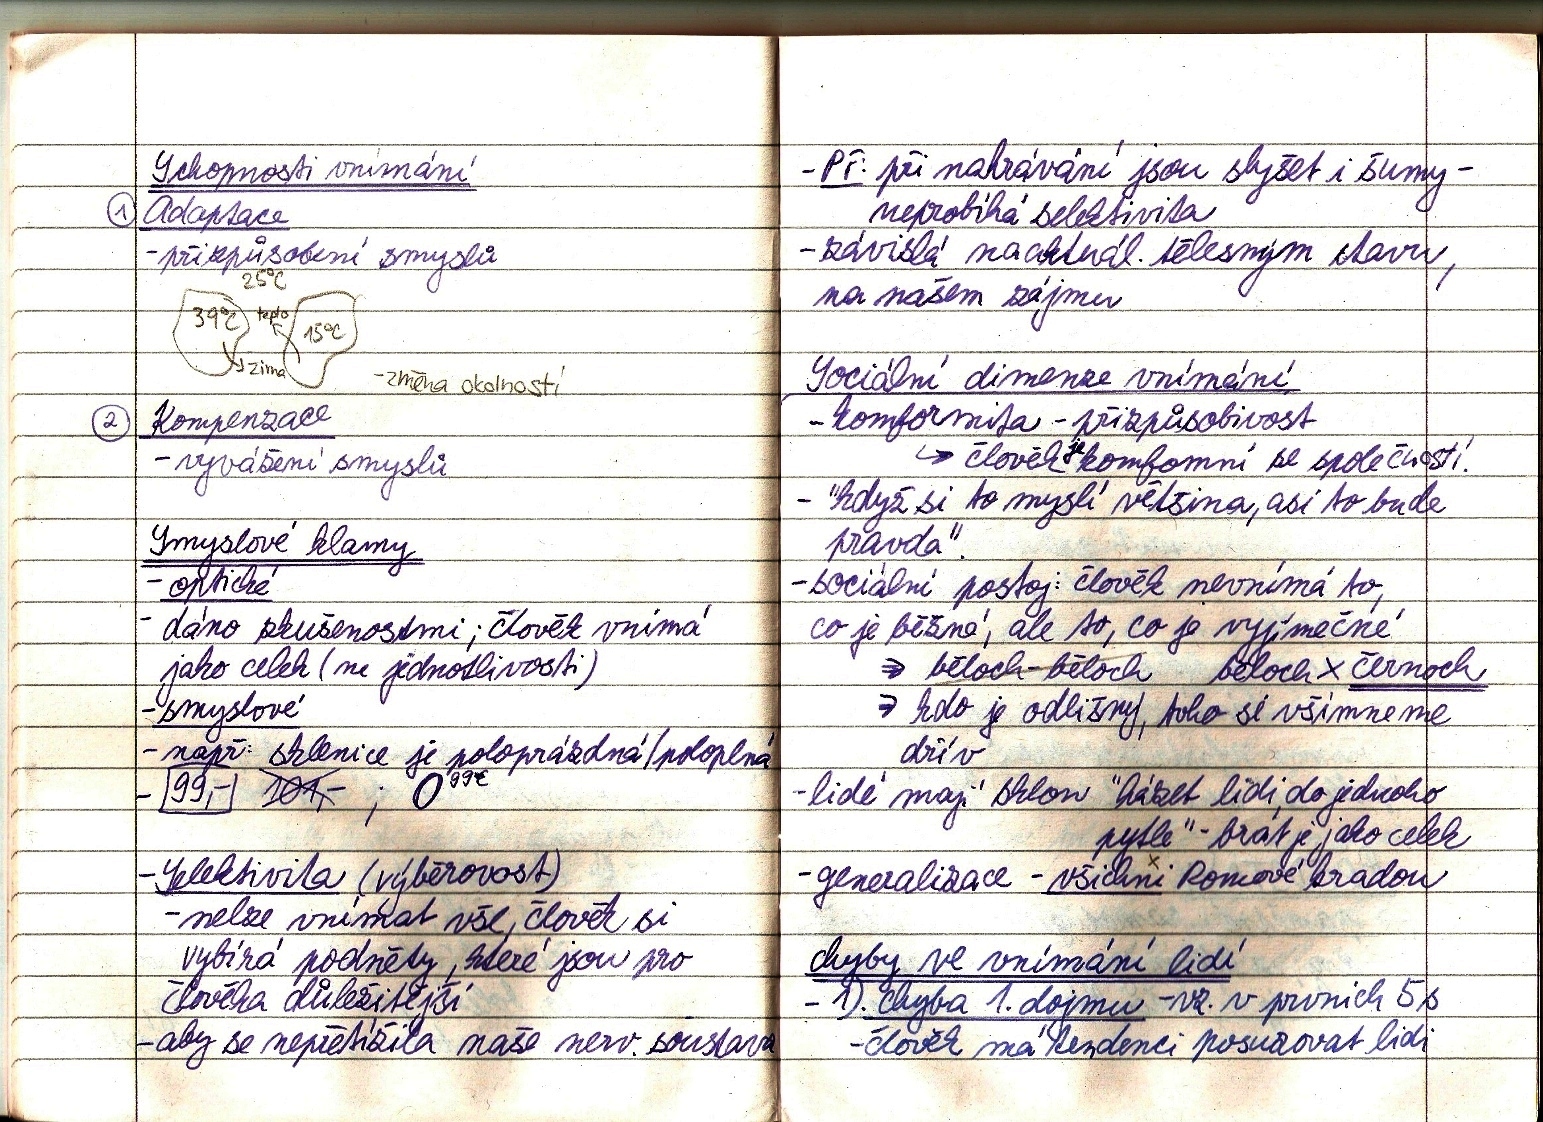 Schopnosti vnímání
1 Adaptace
- přizpůsobení smyslů
25°C
39°C teplo 15°C
zima
- změna okolností
2 Kompenzace
- vyvážení smyslů
Smyslové klamy
- optické
- dáno zkušenostmi; člověk vnímá
jako celek (ne jednotlivosti)
- smyslové
- např: sklenice je poloprázdná/poloplná
- 99,- 101,- ; 0 99€
- Selektivita (výběrovost)
- nelze vnímat vše, člověk si
vybírá podněty, které jsou pro
člověka důležitější
- aby se nepřetížila naše nerv. soustava
- Př: při nahrávání jsou slyšet i šumy -
neprobíhá selektivita
- závislá na aktuál. tělesným stavu,
na našem zájmu
Sociální dimenze vnímání
- komformita - přizpůsobivost
↳ člověk je komfomní se společností.
- "když si to myslí většina, asi to bude
pravda".
- sociální postoj: člověk nevnímá to,
co je běžné, ale to, co je vyjímečné
⇒ běloch - běloch běloch x černoch
⇒ kdo je odlišný, toho si všimneme
dřív
- lidé mají sklon "házet lidi do jednoho
pytle" - brát je jako celek
- generalizace - všichni Romové kradou
x
chyby ve vnímání lidí
- 1). chyba 1. dojmu - vz. v prvních 5 s
- člověk má tendenci posuzovat lidi